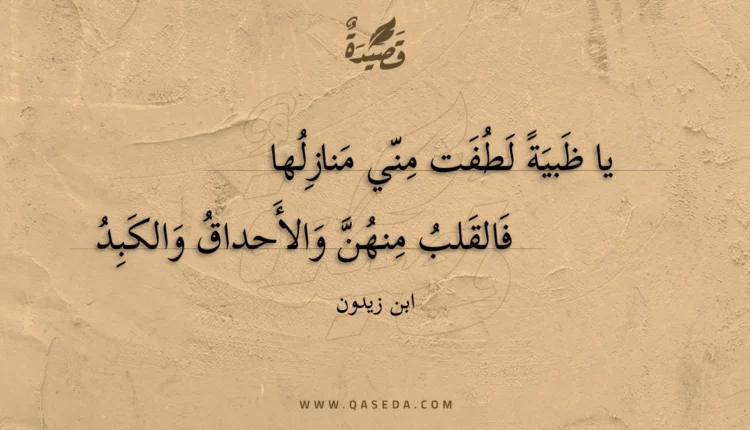 قَصِيدَةٌ
يا ظَبيَةً لَطُفَت مِنّي مَنازِلُها
فَالقَلبُ مِنهُنَّ وَالأَحداقُ وَالكَبِدُ
ابن زيدون
WWW.QASEDA.COM